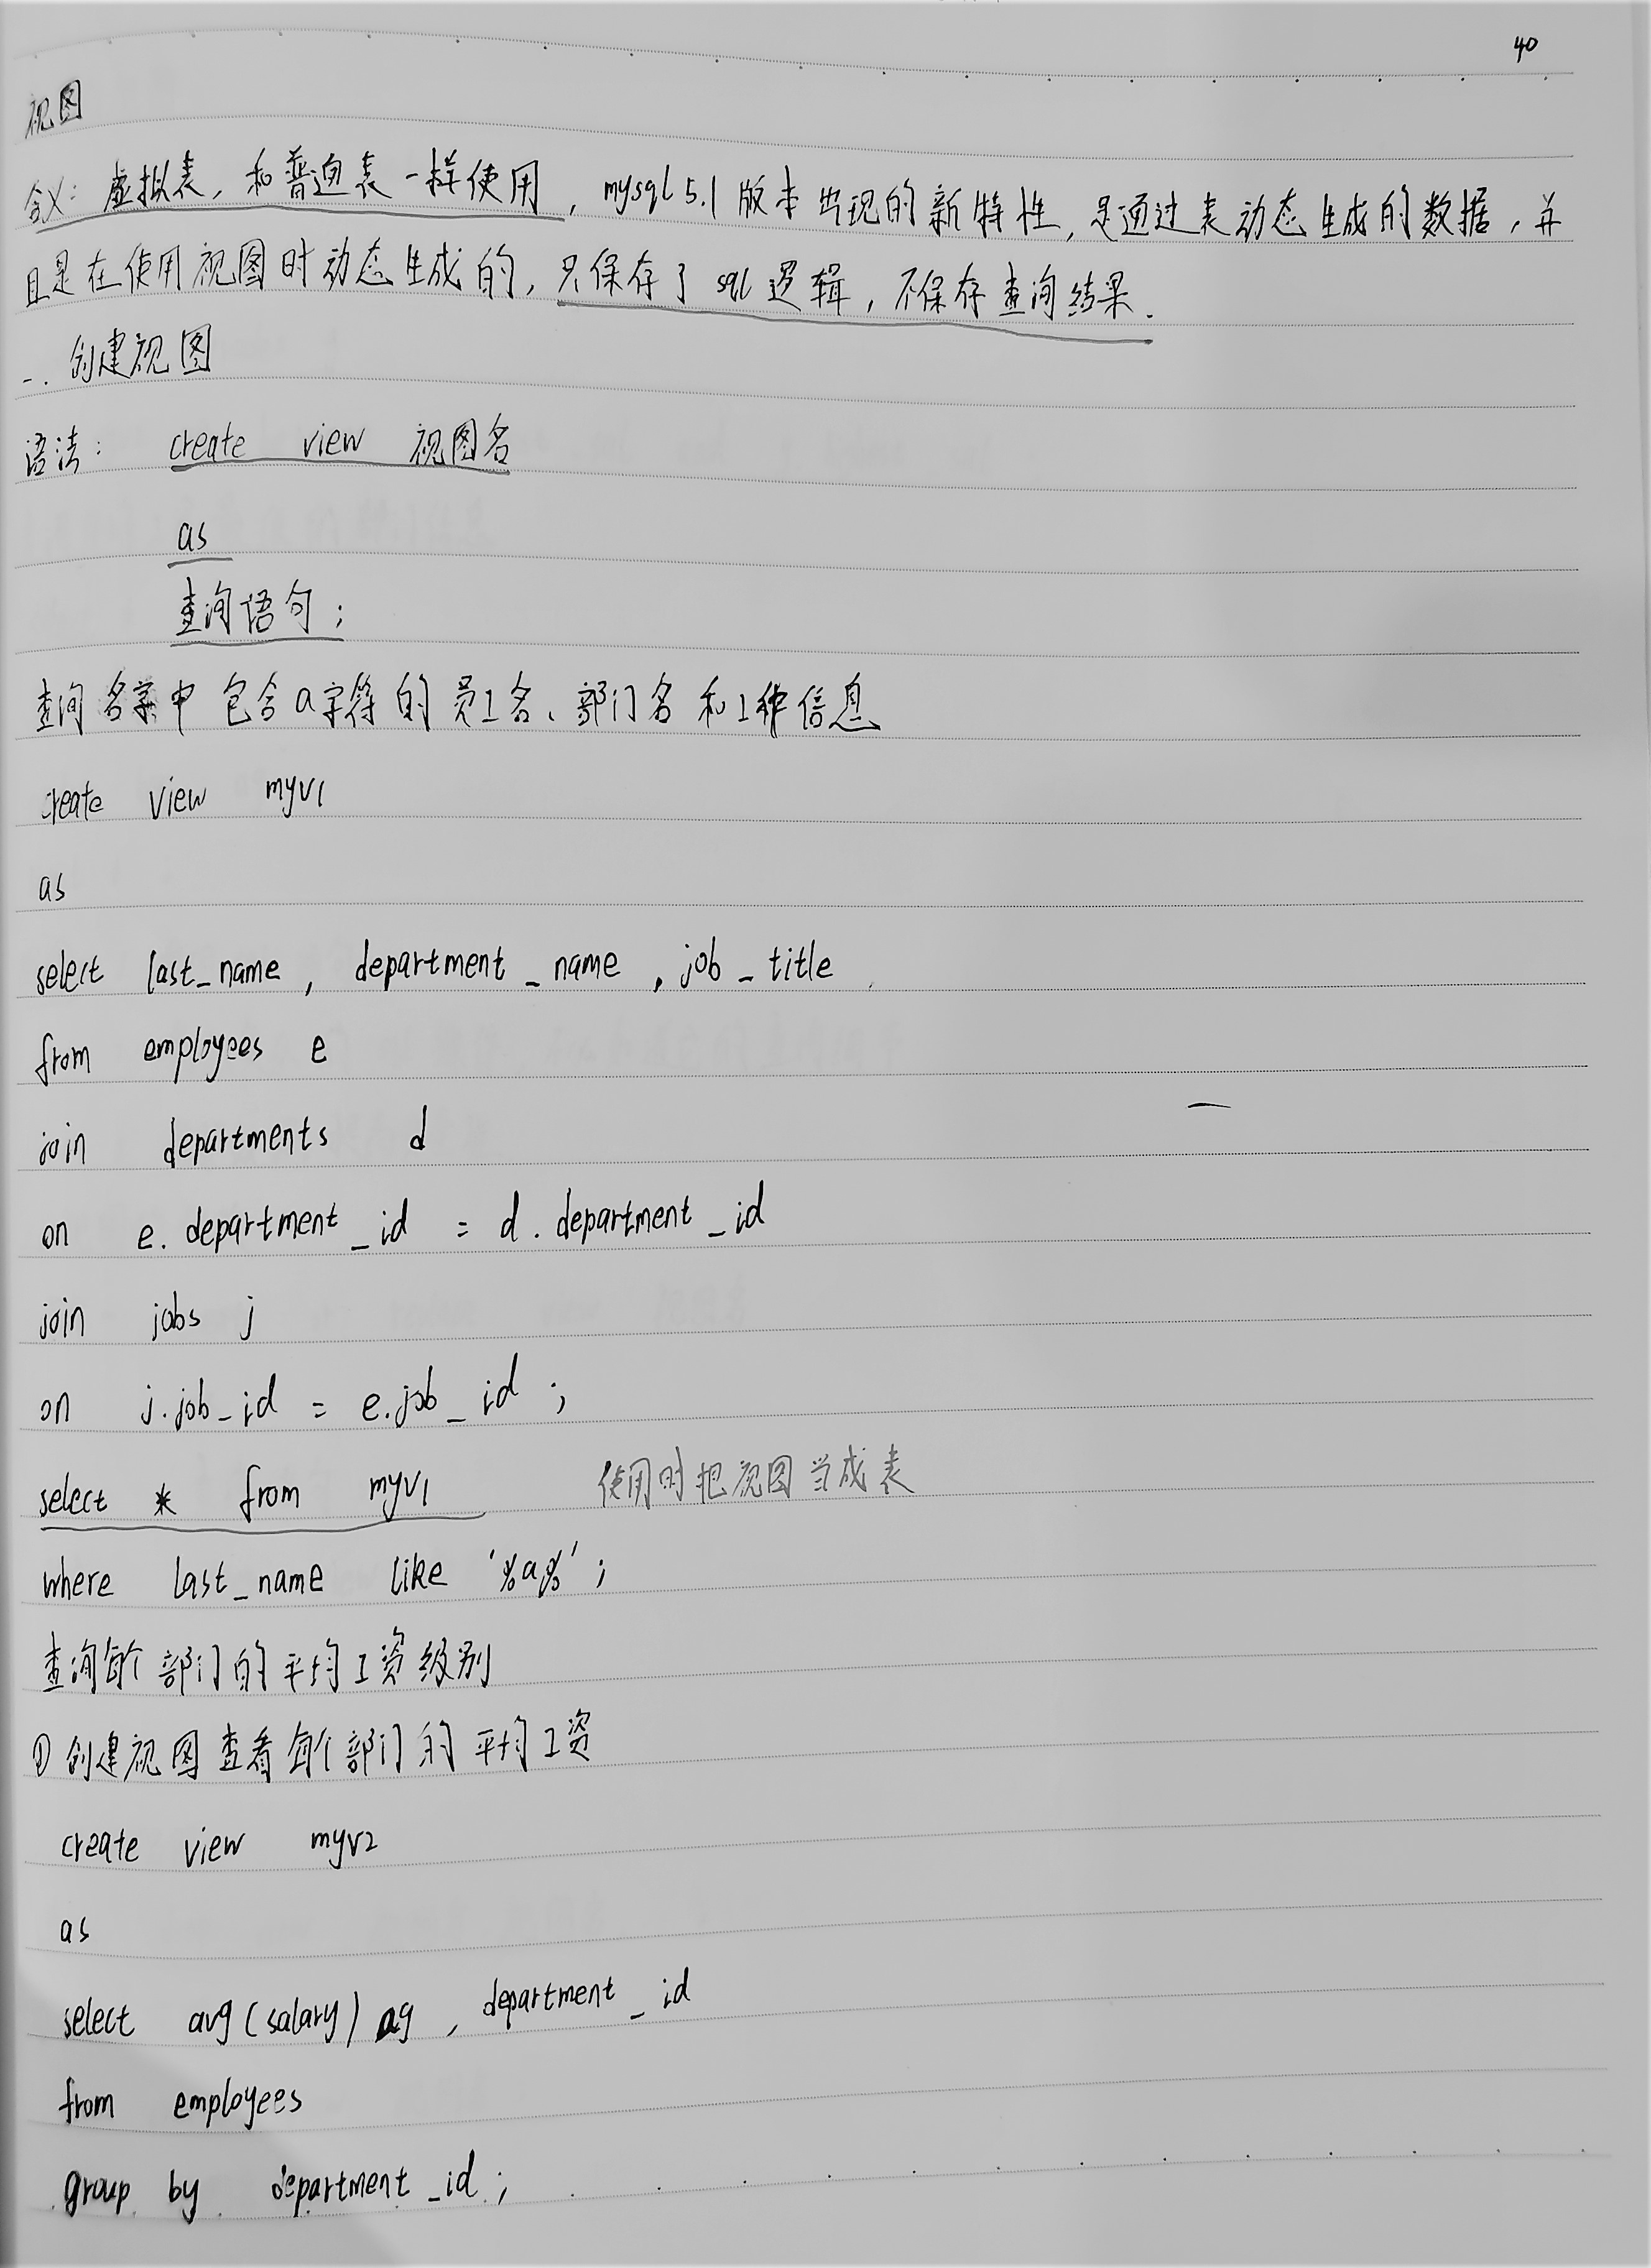 40
视图
含义：虚拟表，和普通表一样使用，mysql5.1版本出现的新特性，是通过表动态生成的数据，并
且是在使用视图时动态生成的，只保存了sql逻辑，不保存查询结果．
一．创建视图
语法： create view 视图名
as
查询语句；
查询名字中包含a字符的员工名、部门名和工种信息
create view myv1
as
select last_name , department _ name , job _ title
from employees e
join departments d
on e. department _id = d . department _id
join jobs j
on j.job_id = e.job_id ;
select * from myv1 使用时把视图当成表
where last_name like '%a%' ;
查询每个部门的平均工资级别
① 创建视图查看每个部门的平均工资
create view myv2
as
select avg(salary) ag , department _id
from employees
group by department _id ;